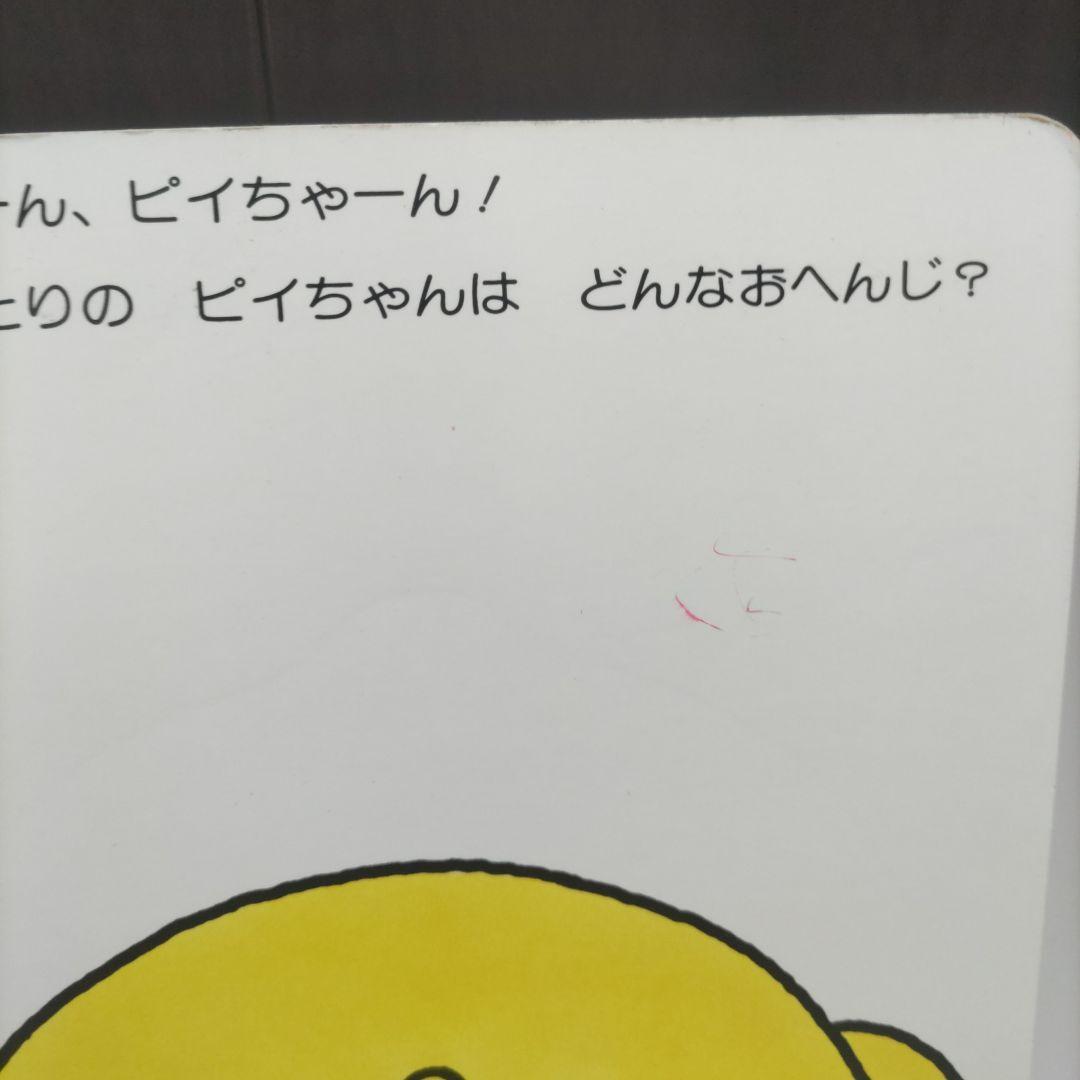 ーん、ピイちゃーん！
とりの　ピイちゃんは　どんなおへんじ？